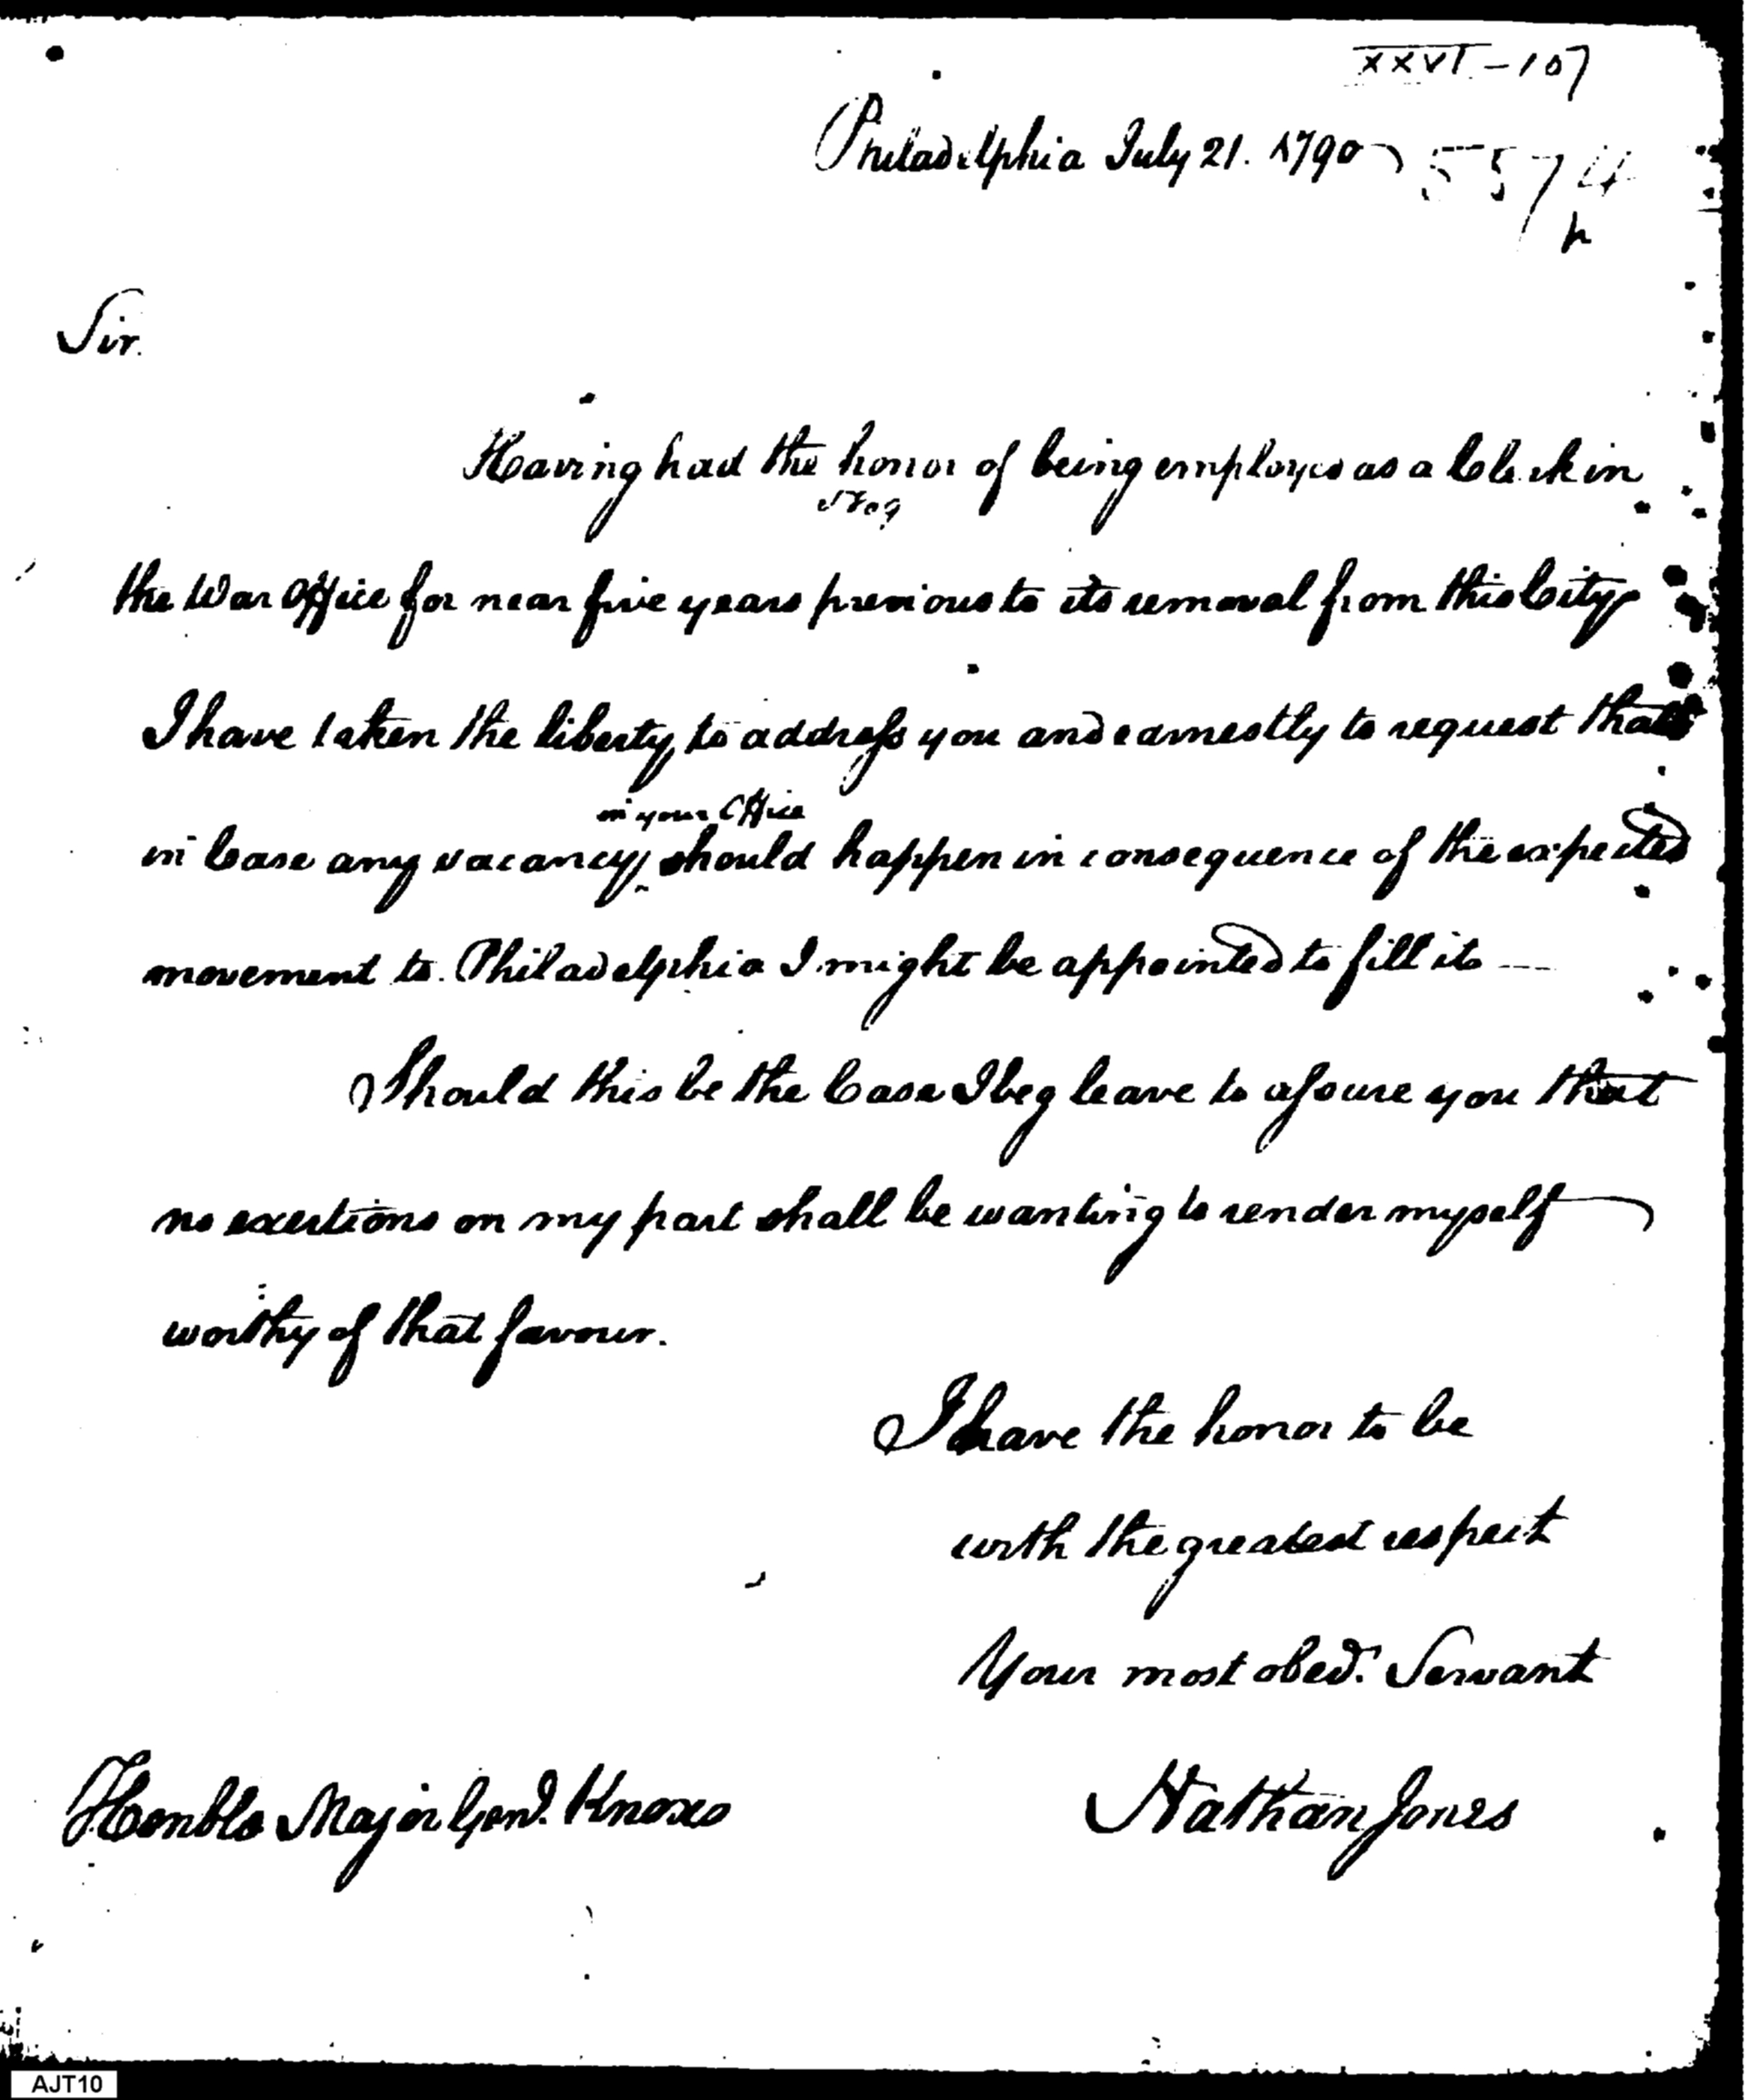 XXVI-107
Philadelphia July 21. 1790
5574
Sir.
Having had the honor of being employed as a Clerk in
the War Office for near five years previous to its removal from this City
I have taken the liberty to address you and earnestly to request that
in your Office
in Case any vacancy should happen in consequence of the expected
movement to Philadelphia I might be appointed to fill it
Should this be the Case I beg leave to assure you that
no exertions on my part shall be wanting to render myself
worthy of that favour.
I have the honor to be
with the greatest respect
Your most obed.t Servant
Honble Major Genl. Knox
Nathan Jones
AJT10